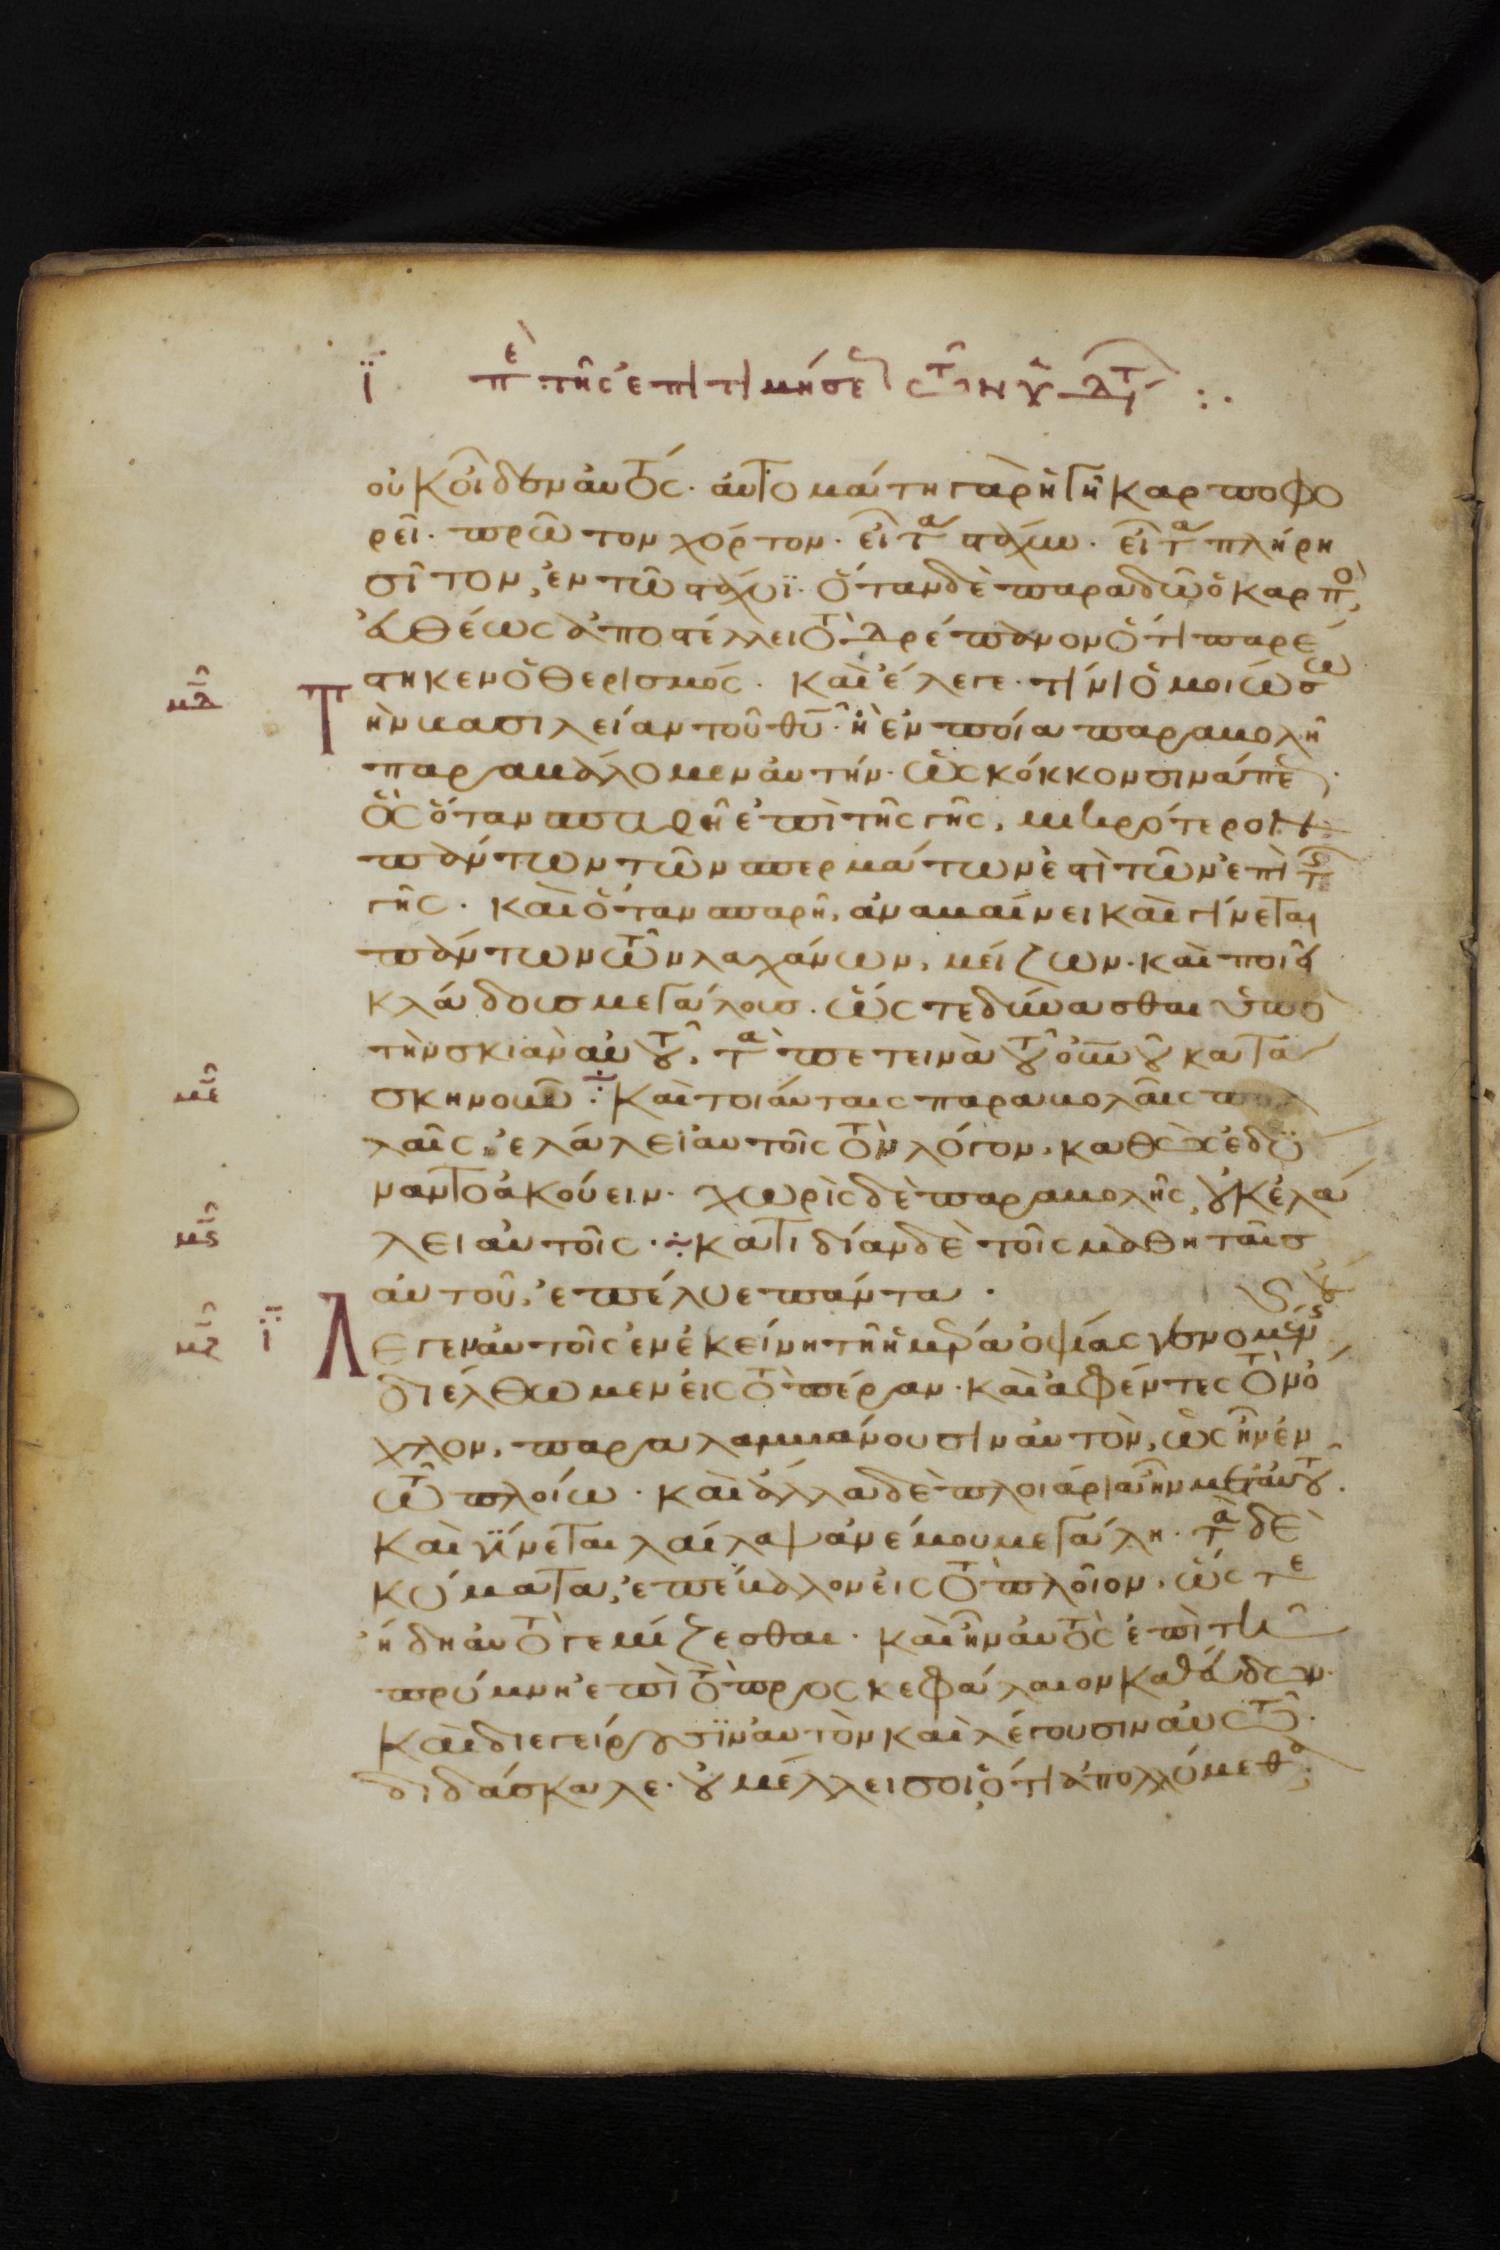 ϊ πε τῆς ἐπιτιμήσε τῶν ὑδτ :·
οὐκ οἶδεν αὐτός· αὐτομάτη γὰρ ἡ γῆ καρποφο
ρεῖ· πρῶτον χόρτον· εἶτα στάχυν· εἶτα πλήρη
σῖτον, ἐν τῶ στάχυϊ· ὅταν δὲ παραδῶ ὁ καρπο,
εὐθέως ἀποστέλλει τὸ δρέπανον ὅτι παρέ
στηκεν ὁ θερισμός· καὶ ἔλεγε· τίνι ὁμοιώσω
μδ Τὴν βασιλείαν τοῦ θυ· ἢ ἐν ποία παραβολῆ
παραβάλομεν αὐτήν· ὡς κόκκον σινάπε·
ὃς ὅταν σπαρῆ ἐπὶ τῆς γῆς, μικρότερον
πάντων τῶν σπερμάτων ἐστὶ τῶν ἐπὶ τῆς
γῆς· καὶ ὅταν σπαρῆ, ἀναβαίνει καὶ γίνεται
πάντων τῶν λαχάνων, μείζων· καὶ ποιεῖ
κλάδους μεγάλους· ὥς τε δύνασθαι ὑπὸ
τὴν σκιὰν αὐτοῦ, τὰ πετεινὰ τοῦ οὐνοῦ κατα
με σκηνοῦν :~ Καὶ τοιαύταις παραβολαῖς πολ
λαῖς, ἐλάλει αὐτοῖς τὸν λόγον, καθὼς ἐδύ
ναντο ἀκούειν· χωρὶς δὲ παραβολῆς, οὐκ ἐλά
μς λει αὐτοῖς·÷ κατιδίαν δὲ τοῖς μαθηταῖς
αὐτοῦ, ἐπέλυε πάντα·
μζ ϊ Λεγεν αὐτοῖς ἐν ἐκείνη τῆ ἡμέρα ὀψίας γενομένης,
διέλθωμεν εἰς τὸ πέραν· καὶ ἀφέντες τὸν ὄ
χλον, παραλαμβάνουσιν αὐτὸν, ὡς ἦν ἐν
τῶ πλοίω· καὶ ἄλλα δὲ πλοιάρια ἦν μετ' αὐτοῦ.
Καὶ γίνεται λαίλαψ ἀνέμου μεγάλη· τὰ δὲ
κύματα, ἐπέβαλον εἰς τὸ πλοῖον, ὥς τε
ἤδη αὐτὸ γεμίζεσθαι· καὶ ἦν αὐτὸς ἐπὶ τῆ
πρύμνη ἐπὶ τὸ προσκεφάλαιον καθεύδων·
Καὶ διεγείρουσϊν αὐτὸν καὶ λέγουσιν αὐτῶ·
διδάσκαλε· οὐ μέλλει σοι ὅτι ἀπολλύμεθα;